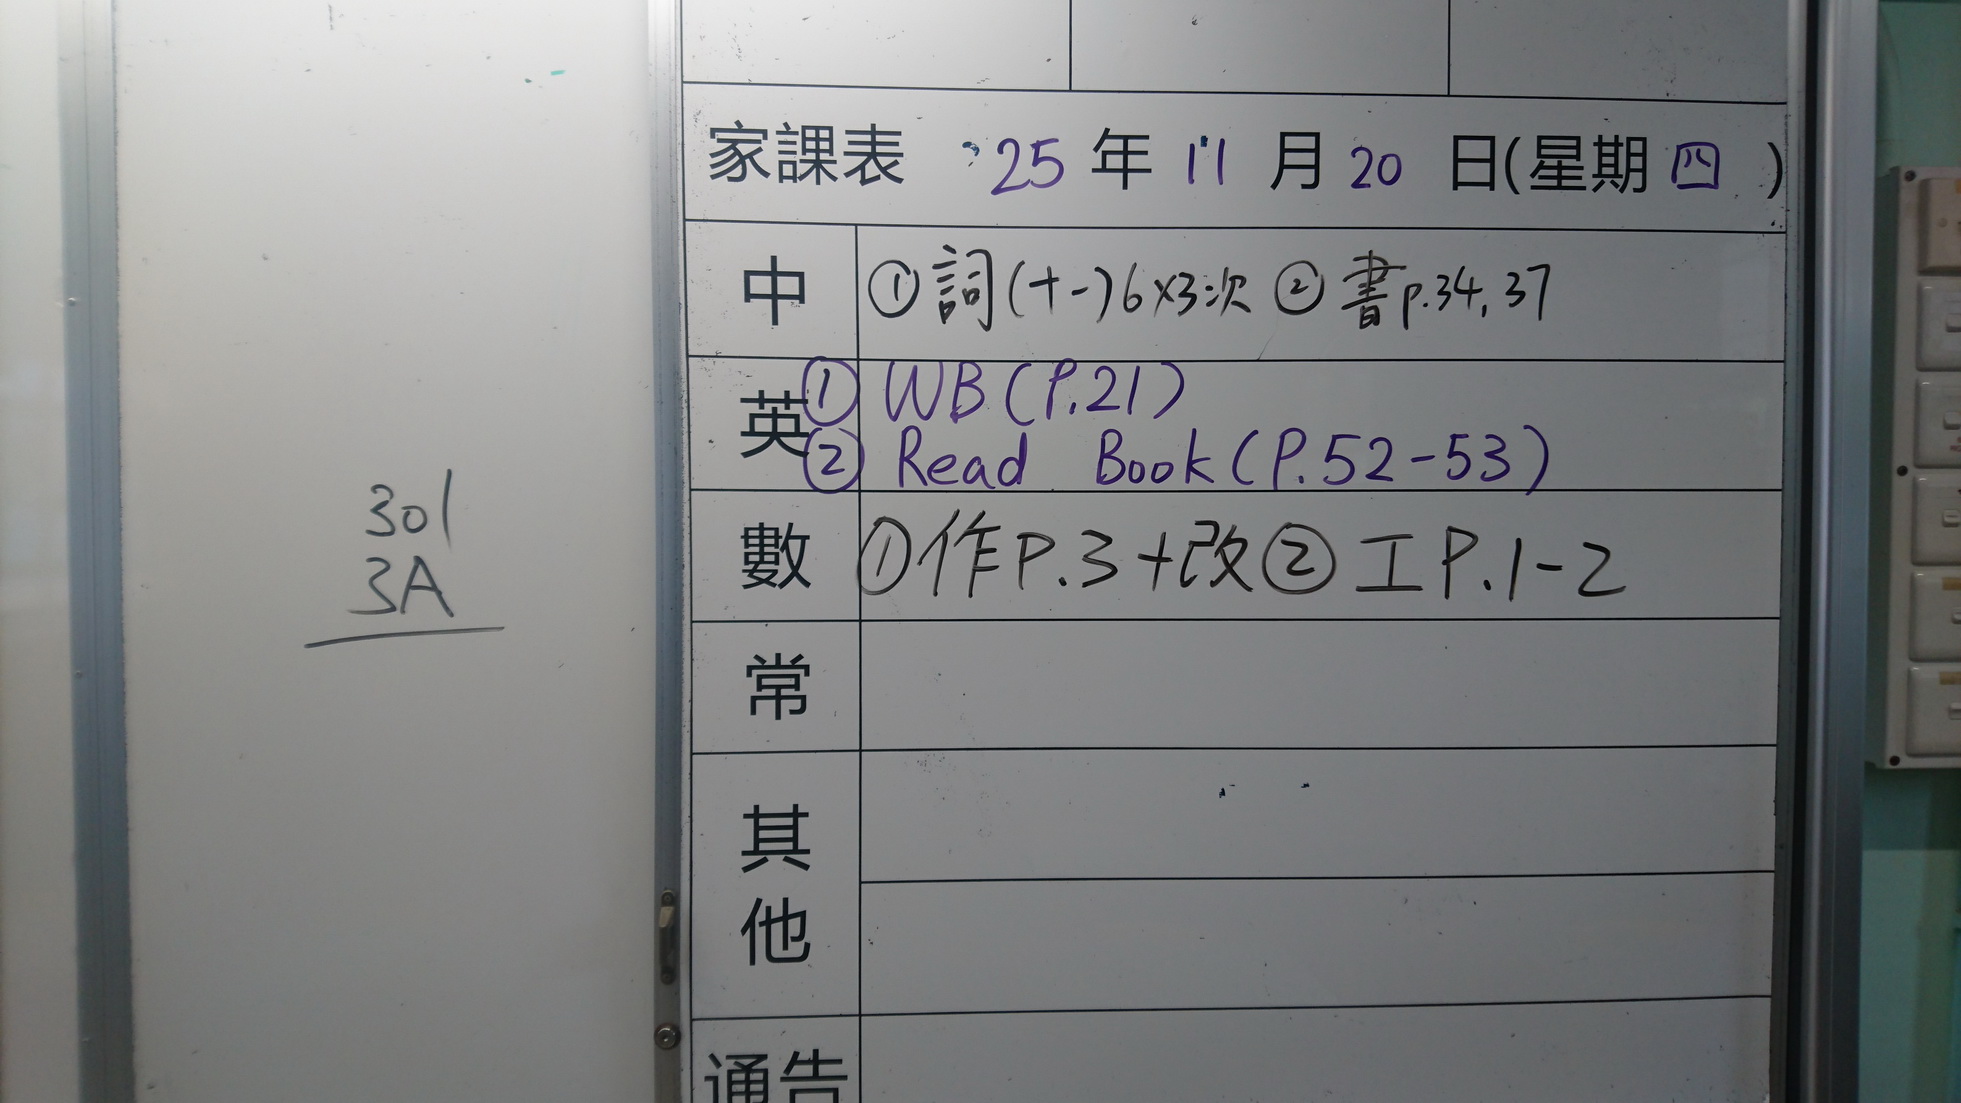 家課表 25年11月20日(星期四)
中 ①詞(十一)6x3次 ②書p.34,37
英 ① WB(P.21)
② Read Book(P.52-53)
數 ①作P.3+改②工P.1-2
常
其他
通告
301
3A